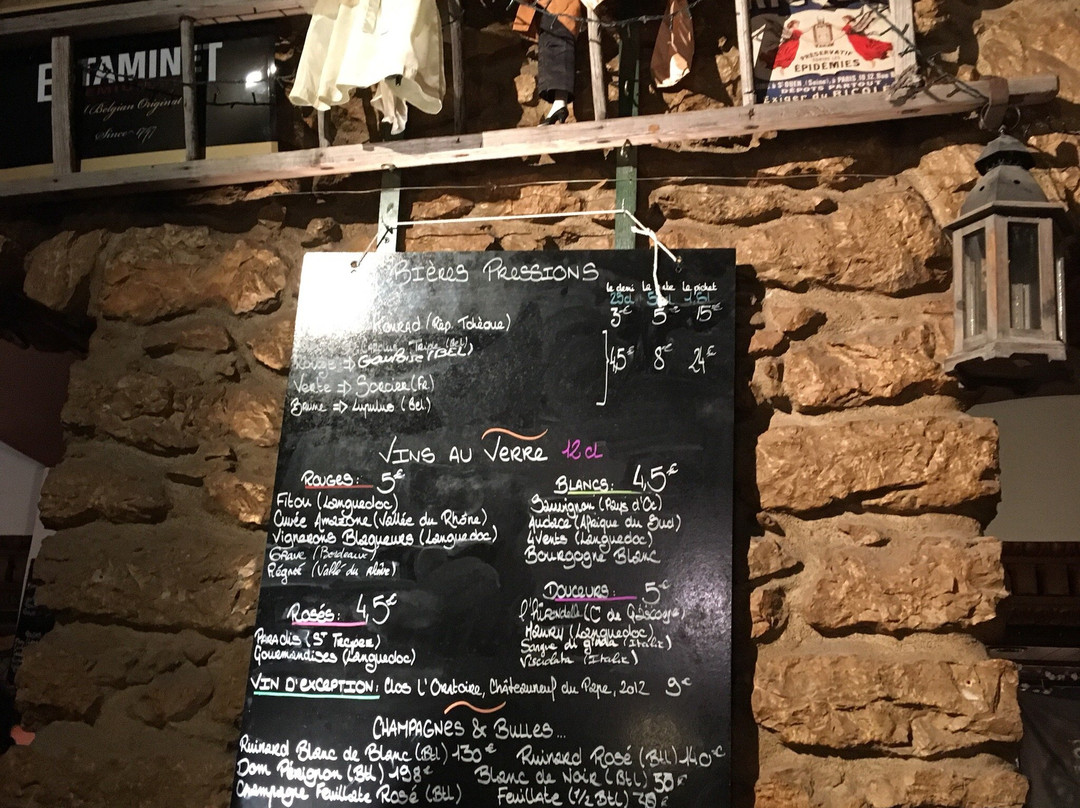 ESTAMINET
Belgian Original
Since
PRÉSERVATIF
EPIDEMIES
DÉPÔTS PARTOUT
Exiger du
BIÈRES PRESSIONS
le demi La le pichet
25cl
3€ 5€ 15€
(Rép. Tchèque)
(BEL)
4,5€ 8€ 24€
Verte => Sorcier (Fr)
Brune => Lupulus (Bel)
VINS AU VERRE 12 cl
ROUGES: 5€
Fitou (Languedoc)
Cuvée Amazone (Vallée du Rhône)
Vignerons Blagueurs (Languedoc)
Grave (Bordeaux)
Régnié (Vallé du Rhône)
BLANCS: 4,5€
Sauvignon (Pays d'Oc)
Audace (Afrique du Sud)
4 Vents (Languedoc)
Bourgogne Blanc
ROSÉS: 4,5€
Paradis (St Tropez)
Gourmandises (Languedoc)
DOUCEURS: 5€
l'Hirondelle (C de Gascogne)
Maury (Languedoc)
Sangue di giuda (Italie)
Visciolata (Italie)
VIN D'EXCEPTION: Clos L'Oratoire, Châteauneuf du Pape, 2012 9€
CHAMPAGNES & BULLES...
Ruinard Blanc de Blanc (Btl) 130€ Ruinard Rosé (Btl) 140€
Dom Pérignon (Btl) 198€ Blanc de Noir (Btl) 50€
Champagne Feuillate Rosé (Btl) Feuillate (1/2 Btl)